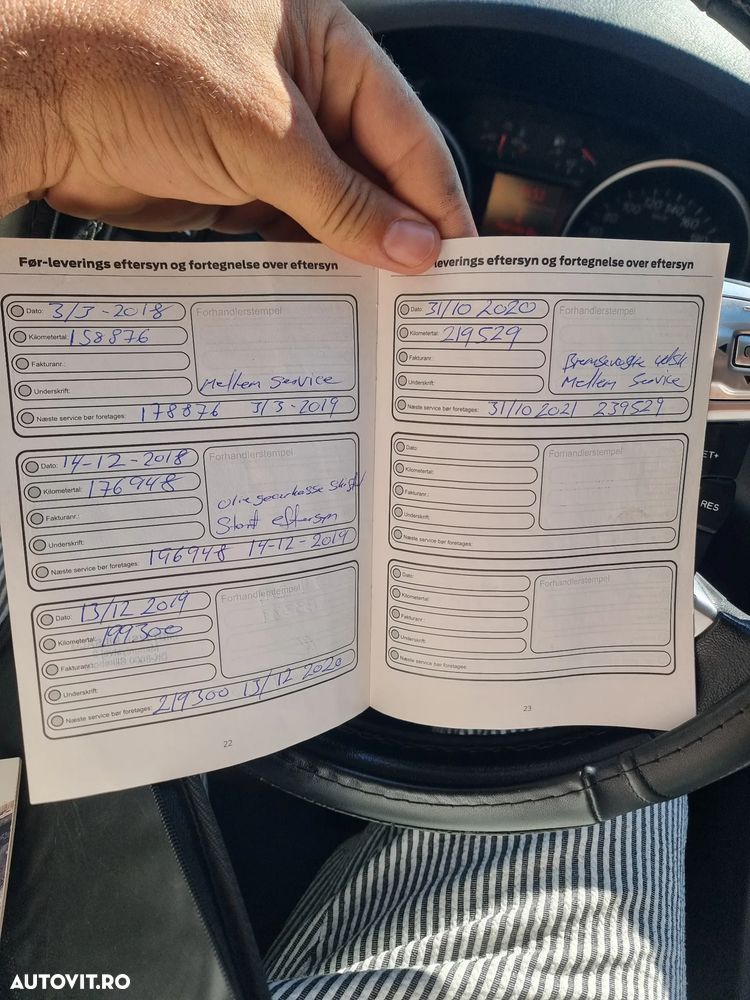 Før-leverings eftersyn og fortegnelse over eftersyn
Dato: 3/3-2018
Kilometertal: 158876
Fakturanr.:
Underskrift:
Forhandlerstempel
Mellem Service
Næste service bør foretages: 178876 3/3-2019
Dato: 14-12-2018
Kilometertal: 176948
Fakturanr.:
Underskrift:
Forhandlerstempel
Stort eftersyn
Næste service bør foretages: 196948 14-12-2019
Dato: 13/12 2019
Kilometertal: 199300
Fakturanr.:
Underskrift:
Forhandlerstempel
Næste service bør foretages: 219300 13/12 2020
22
leverings eftersyn og fortegnelse over eftersyn
Dato: 31/10 2020
Kilometertal: 219529
Fakturanr.:
Underskrift:
Forhandlerstempel
Mellem Service
Næste service bør foretages: 31/10 2021 239529
Dato:
Kilometertal:
Fakturanr.:
Underskrift:
Forhandlerstempel
Næste service bør foretages:
Dato:
Kilometertal:
Fakturanr.:
Underskrift:
Forhandlerstempel
Næste service bør foretages:
23
ET+
RES
AUTOVIT.RO